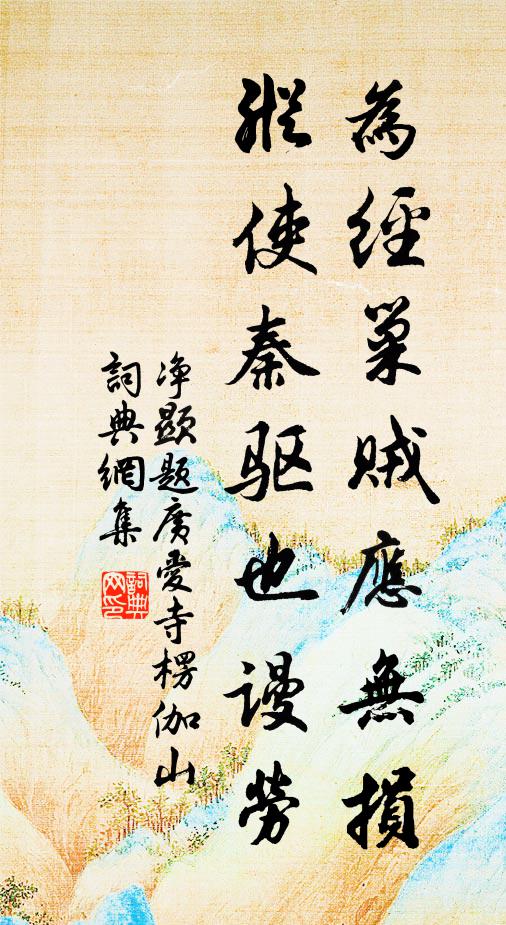 為經巢賊應無損
縱使秦驱也謾勞
净顯題廣愛寺楞伽山
詞典網集
詞典
网印